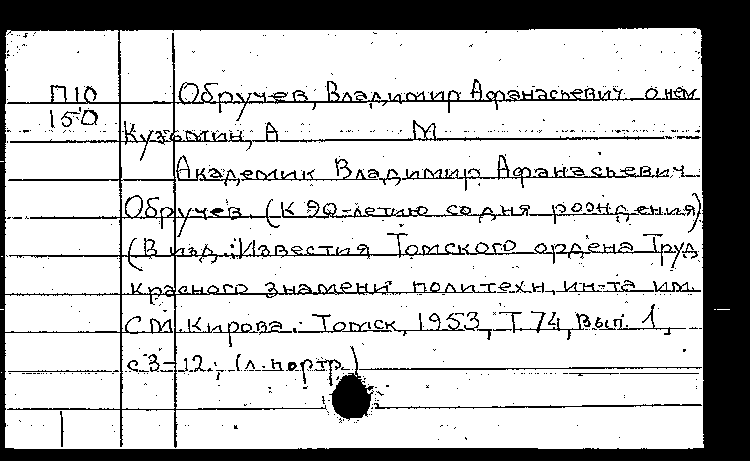 П10 Обручев, Владимир Афанасьевич о нем
150
Кузьмин, А М
Академик Владимир Афанасьевич
Обручев. (К 90-летию со дня рождения)
(В изд.: Известия Томского ордена Труд
красного знамени политехн. ин-та им.
С.М. Кирова. Томск, 1953, Т. 74, Вып. 1,
с 3-12., (л. портр.)